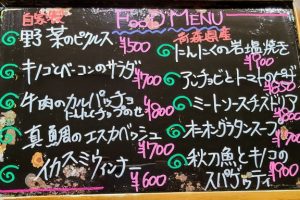 自家製
FOOD MENU
野菜のピクルス
¥500
キノコとベーコンのサラダ
¥700
牛肉のカルパッチョ
¥800
真鯛のエスカベッシュ
¥700
イカスミウィンナー
¥600
青森県産
にんにくの岩塩焼き
¥900
アンチョビとトマトのピザ
ミートソースチーズドリア
¥800
オニオングラタンスープ
¥700
秋刀魚とキノコの
スパゲッティ
¥900